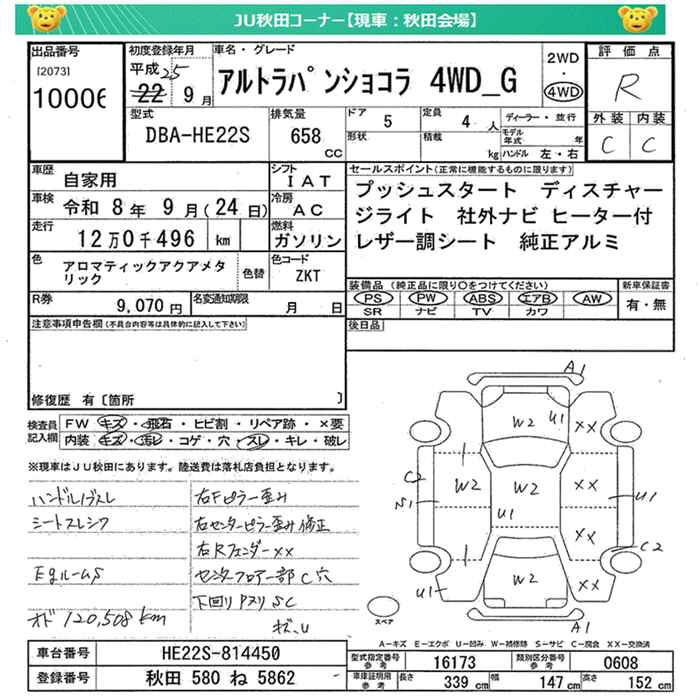 JU秋田コーナー【現車：秋田会場】
出品番号
[2073]
10006
初度登録年月
平成25
22 9月
車名・グレード
アルトラパンショコラ 4WD_G
2WD
・
4WD
評価点
R
外装 内装
C C
型式
DBA-HE22S
排気量
658
CC
ドア 5
定員 4 人
形状
積載 kg
ディーラー・並行
モデル年式 年
ハンドル 左・右
車歴 自家用
シフト IAT
車検 令和 8年 9月(24日)
冷房 AC
走行 12万0千496 km
燃料 ガソリン
色 アロマティックアクアメタリック
色替
色コード ZKT
R券 9,070円
名変通知期限 月 日
セールスポイント(正常に機能するものに限ります)
プッシュスタート ディスチャー
ジライト 社外ナビ ヒーター付
レザー調シート 純正アルミ
装備品(純正品に限り○をつけてください)
PS PW ABS エアB AW
SR ナビ TV カワ
新車保証書
有・無
後日品
注意事項申告欄(不具合内容等は具体的に記入して下さい)
修復歴 有〔箇所 〕
検査員記入欄
FW キズ・飛石・ヒビ割・リペア跡・×要
内装 キズ・汚レ・コゲ・穴・スレ・キレ・破レ
※現車はJU秋田にあります。陸送費は落札店負担となります。
シートスレシワ
Egルーム S
オド 120,508km
右Fピラー歪み
右センターピラー歪み修正
右Rフェンダー××
センターフロアー部C穴
下回りPスリSC
A1
W2
U1
××
1
C2
S1
W2
W2
U1
××
U1
××
C2
1
W2
××
U1
A1
スペア
A－キズ E－エクボ U－凹み W－補修跡 S－サビ C－腐食 ××－交換済
車台番号 HE22S-814450
登録番号 秋田 580 ね 5862
型式指定番号 参考 16173
類別区分番号 参考 0608
車庫証明用 参考
長さ 339 cm
幅 147 cm
高さ 152 cm